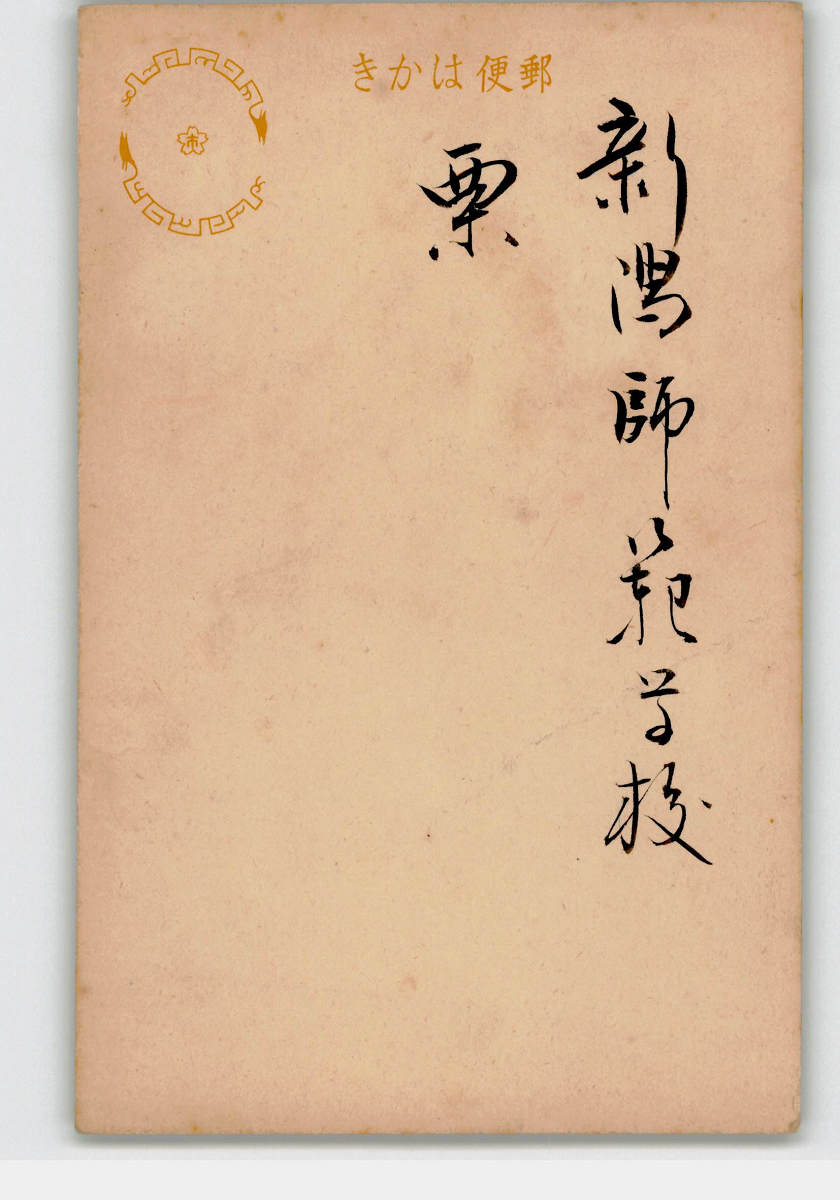 郵便はかき
新潟師範学校
栗